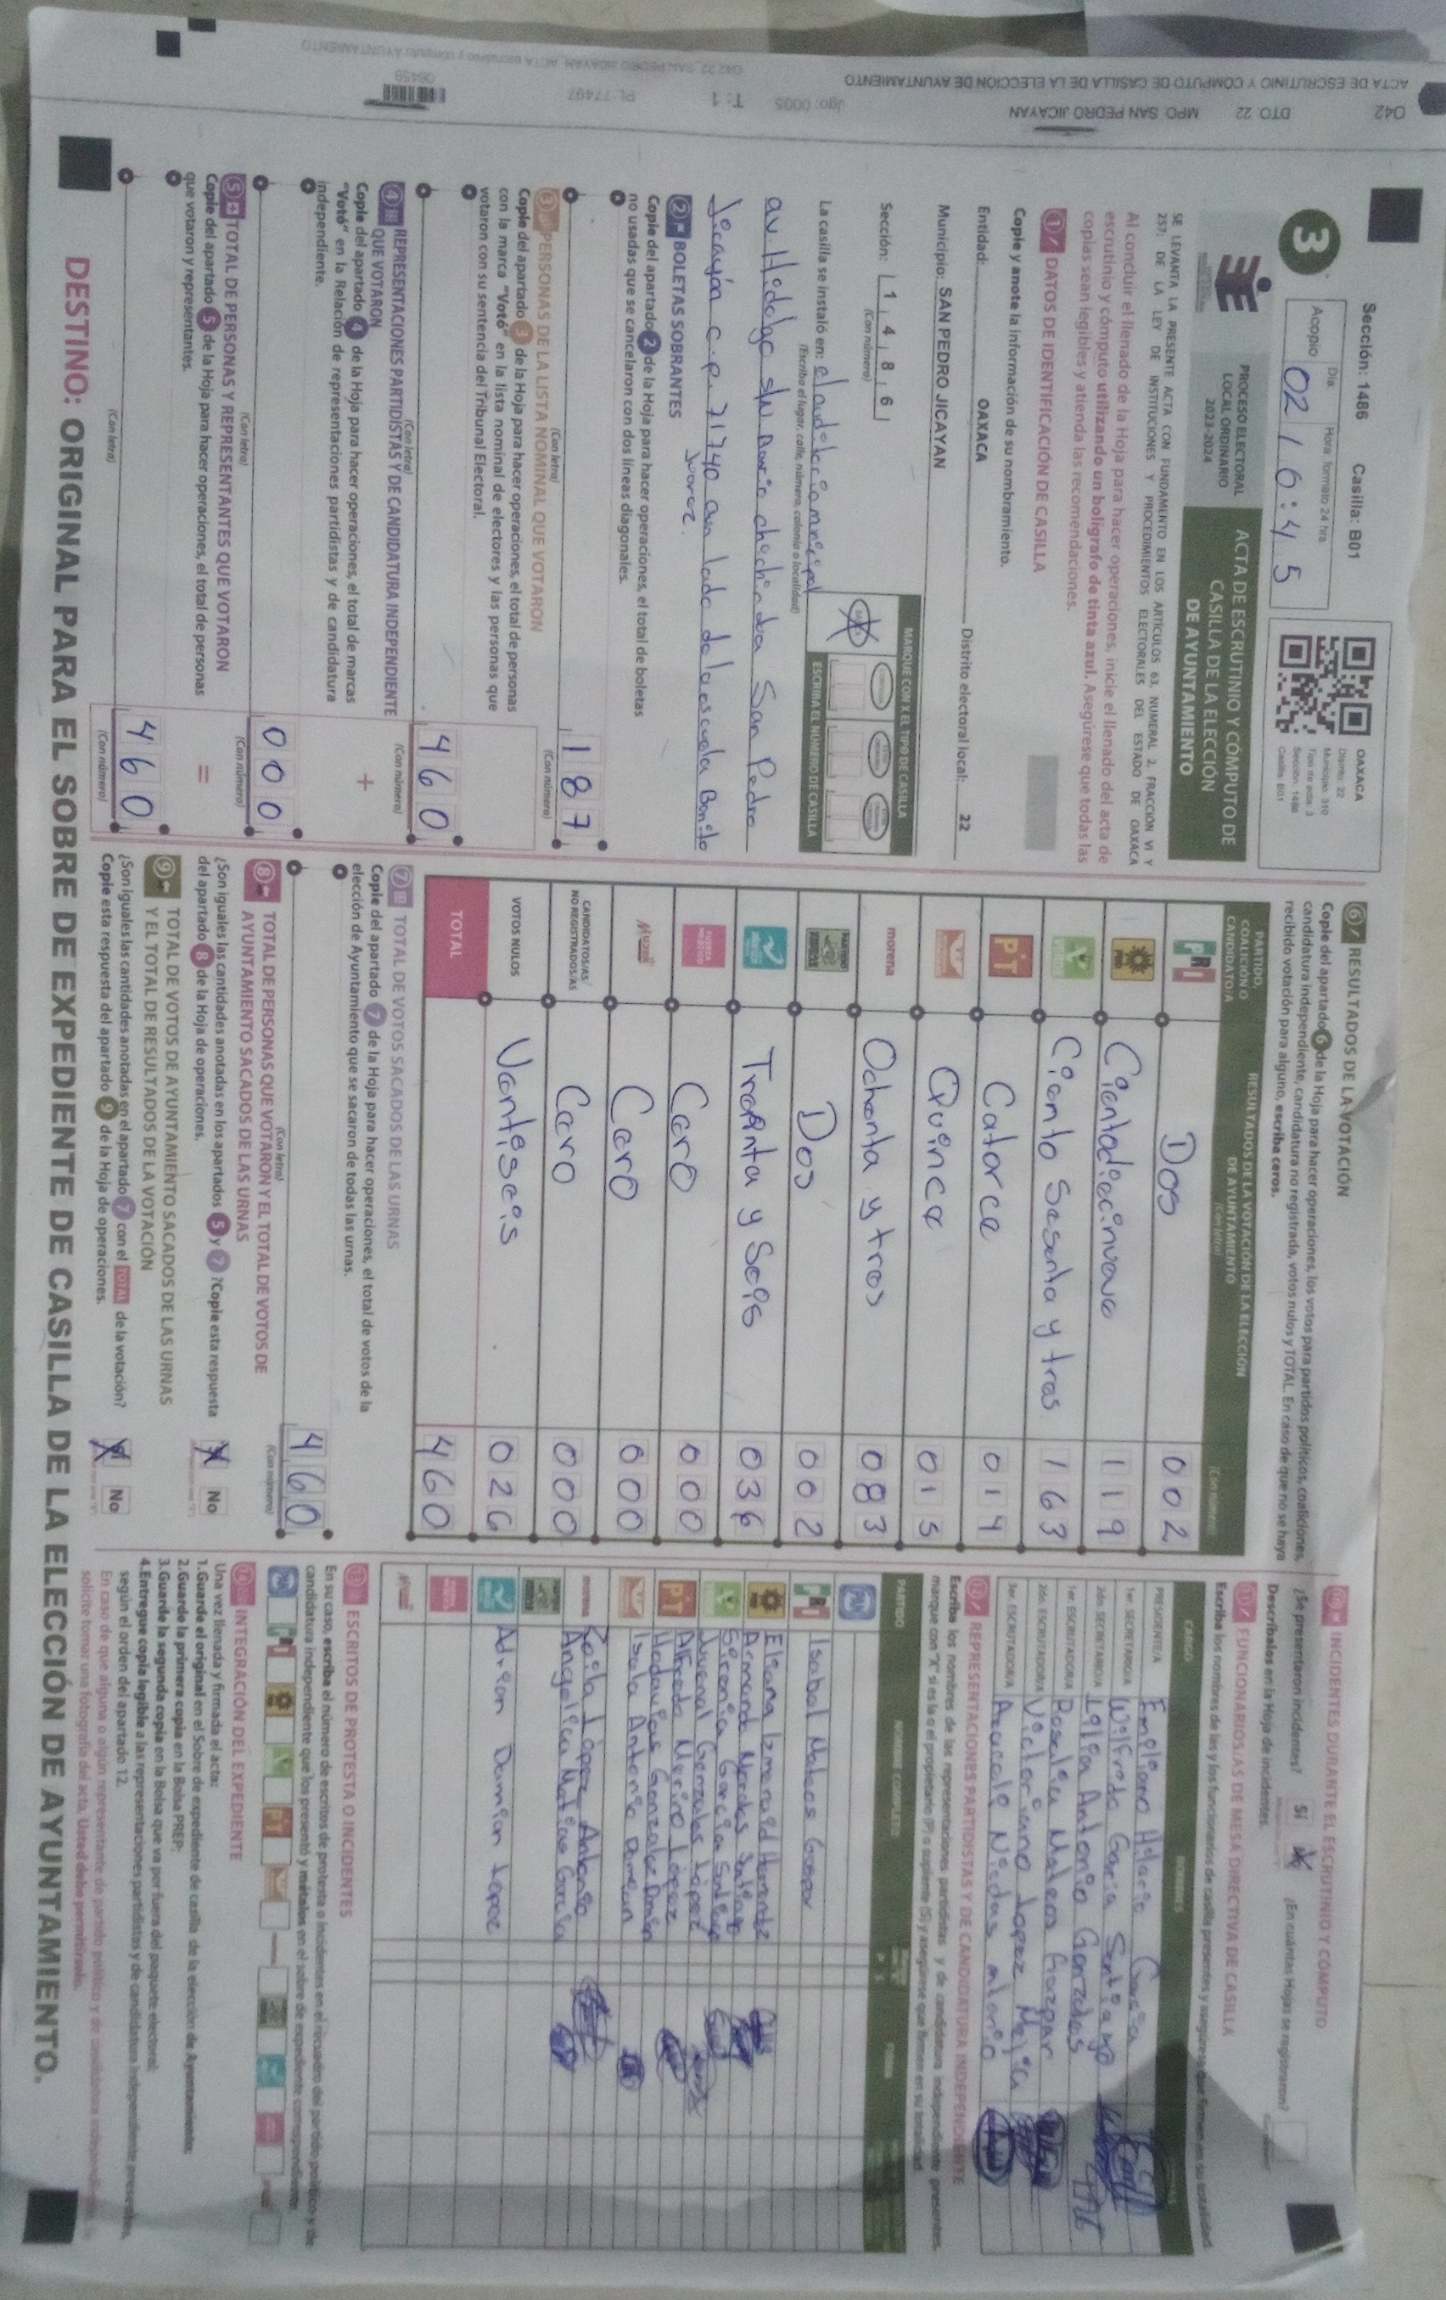 042 DTO. 22 MPO. SAN PEDRO JICAYAN
ACTA DE ESCRUTINIO Y CÓMPUTO DE CASILLA DE LA ELECCIÓN DE AYUNTAMIENTO
Sección: 1486 Casilla: B01
3
Acopio
Día:
Hora: formato 24 hrs
02 16:45
OAXACA
Distrito: 22
Municipio: 310
Sección: 1486
Casilla: B01
PROCESO ELECTORAL
LOCAL ORDINARIO
2023-2024
ACTA DE ESCRUTINIO Y CÓMPUTO DE
CASILLA DE LA ELECCIÓN
DE AYUNTAMIENTO
SE LEVANTA LA PRESENTE ACTA CON FUNDAMENTO EN LOS ARTÍCULOS 63, NUMERAL 2, FRACCIÓN VI Y
237; DE LA LEY DE INSTITUCIONES Y PROCEDIMIENTOS ELECTORALES DEL ESTADO DE OAXACA
Al concluir el llenado de la Hoja para hacer operaciones, inicie el llenado del acta de
escrutinio y cómputo utilizando un bolígrafo de tinta azul. Asegúrese que todas las
copias sean legibles y atienda las recomendaciones.
1 DATOS DE IDENTIFICACIÓN DE CASILLA
Copie y anote la información de su nombramiento.
Entidad: OAXACA Distrito electoral local: 22
Municipio: SAN PEDRO JICAYAN
Sección: 1 4 8 6
(Con número)
MARQUE CON X EL TIPO DE CASILLA
ESCRIBA EL NÚMERO DE CASILLA
La casilla se instaló en:
(Escriba el lugar, calle, número, colonia o localidad)
av Hidalgo s/N San Pedro
Jicayán c.p. 71740
2 BOLETAS SOBRANTES
Copie del apartado 2 de la Hoja para hacer operaciones, el total de boletas
no usadas que se cancelaron con dos líneas diagonales.
187
(Con letra) (Con número)
3 PERSONAS DE LA LISTA NOMINAL QUE VOTARON
Copie del apartado 3 de la Hoja para hacer operaciones, el total de personas
con la marca "Votó" en la lista nominal de electores y las personas que
votaron con su sentencia del Tribunal Electoral.
460
(Con letra) (Con número)
4 REPRESENTACIONES PARTIDISTAS Y DE CANDIDATURA INDEPENDIENTE
QUE VOTARON
Copie del apartado 4 de la Hoja para hacer operaciones, el total de marcas
"Votó" en la Relación de representaciones partidistas y de candidatura
independiente.
+
000
(Con letra) (Con número)
5 TOTAL DE PERSONAS Y REPRESENTANTES QUE VOTARON
Copie del apartado 5 de la Hoja para hacer operaciones, el total de personas
que votaron y representantes.
=
460
(Con letra) (Con número)
6 RESULTADOS DE LA VOTACIÓN
Copie del apartado 6 de la Hoja para hacer operaciones, los votos para partidos políticos, coaliciones,
candidatura independiente, candidatura no registrada, votos nulos y TOTAL. En caso de que no se haya
recibido votación para alguno, escriba ceros.
PARTIDO,
COALICIÓN O
CANDIDATO/A
RESULTADOS DE LA VOTACIÓN DE LA ELECCIÓN
DE AYUNTAMIENTO
(Con letra)
(Con número)
PRI Dos 002
PRD Cientodiecinueve 119
VERDE Ciento Sesenta y tres 163
PT Catorce 014
Quince 015
morena Ochenta y tres 083
Dos 002
Treinta y Seis 036
Cero 000
Cero 000
CANDIDATOS/AS
NO REGISTRADOS/AS Cero 000
VOTOS NULOS Vantiseis 026
TOTAL 460
7 TOTAL DE VOTOS SACADOS DE LAS URNAS
Copie del apartado 7 de la Hoja para hacer operaciones, el total de votos de la
elección de Ayuntamiento que se sacaron de todas las urnas.
460
(Con letra) (Con número)
8 TOTAL DE PERSONAS QUE VOTARON Y EL TOTAL DE VOTOS DE
AYUNTAMIENTO SACADOS DE LAS URNAS
¿Son iguales las cantidades anotadas en los apartados 5 y 7? Copie esta respuesta
del apartado 8 de la Hoja de operaciones.
X No
9 TOTAL DE VOTOS DE AYUNTAMIENTO SACADOS DE LAS URNAS
Y EL TOTAL DE RESULTADOS DE LA VOTACIÓN
¿Son iguales las cantidades anotadas en el apartado 7 con el TOTAL de la votación?
Copie esta respuesta del apartado 9 de la Hoja de operaciones.
X No
10 INCIDENTES DURANTE EL ESCRUTINIO Y CÓMPUTO
¿Se presentaron incidentes? Sí X ¿En cuántas Hojas se registraron?
Descríbalos en la Hoja de incidentes.
11 FUNCIONARIOS/AS DE MESA DIRECTIVA DE CASILLA
Escriba los nombres de las y los funcionarios de casilla presentes y asegúrese que firmen en su totalidad
CARGO NOMBRES
PRESIDENTE/A Empliano Hilario Garcia
1er. SECRETARIO/A Wilfredo Garcia Santiago
2do. SECRETARIO/A Lilia Antonio Gonzales
1er. ESCRUTADOR/A Rosalia Mateos Gaspar
2do. ESCRUTADOR/A Victoriano Lopez Mejia
3er. ESCRUTADOR/A Araceli
12 REPRESENTACIONES PARTIDISTAS Y DE CANDIDATURA INDEPENDIENTE
Escriba los nombres de las representaciones partidistas y de candidatura independiente presentes,
marque con "X" si es la o el propietario (P) o suplente (S) y asegúrese que firmen en su totalidad
PARTIDO NOMBRE COMPLETO FIRMA
PAN
PRI Isabel Mateos Gaspar
Armando
Juvenal Gonzales López
Alfredo Merino López
Antonio Damian
morena Zoila López Antonio
Angelica Matias Garcia
Adrian Damian Lopez
13 ESCRITOS DE PROTESTA O INCIDENTES
En su caso, escriba el número de escritos de protesta o incidentes en el recuadro del partido político y de
candidatura independiente que los presentó y métalos en el sobre de expediente correspondiente.
14 INTEGRACIÓN DEL EXPEDIENTE
Una vez llenada y firmada el acta:
1. Guarde el original en el Sobre de expediente de casilla de la elección de Ayuntamiento;
2. Guarde la primera copia en la Bolsa PREP;
3. Guarde la segunda copia en la Bolsa que va por fuera del paquete electoral;
4. Entregue copia legible a las representaciones partidistas y de candidatura independiente presentes,
según el orden del apartado 12.
En caso de que alguna o algún representante de partido político y de candidatura independiente
solicite tomar una fotografía del acta, Usted debe permitírselo.
DESTINO: ORIGINAL PARA EL SOBRE DE EXPEDIENTE DE CASILLA DE LA ELECCIÓN DE AYUNTAMIENTO.